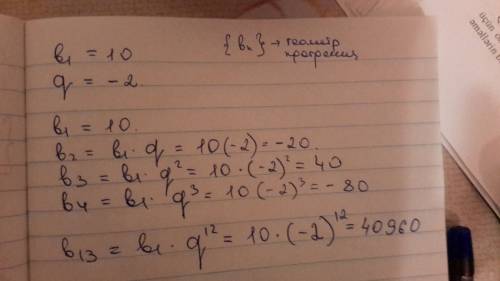 b₁ = 10 {bₙ} → геометр
прогрения
q = -2.
b₁ = 10.
b₂ = b₁ · q = 10(-2) = -20.
b₃ = b₁ · q² = 10 · (-2)² = 40
b₄ = b₁ · q³ = 10(-2)³ = - 80
b₁₃ = b₁ · q¹² = 10 · (-2)¹² = 40960
üçün